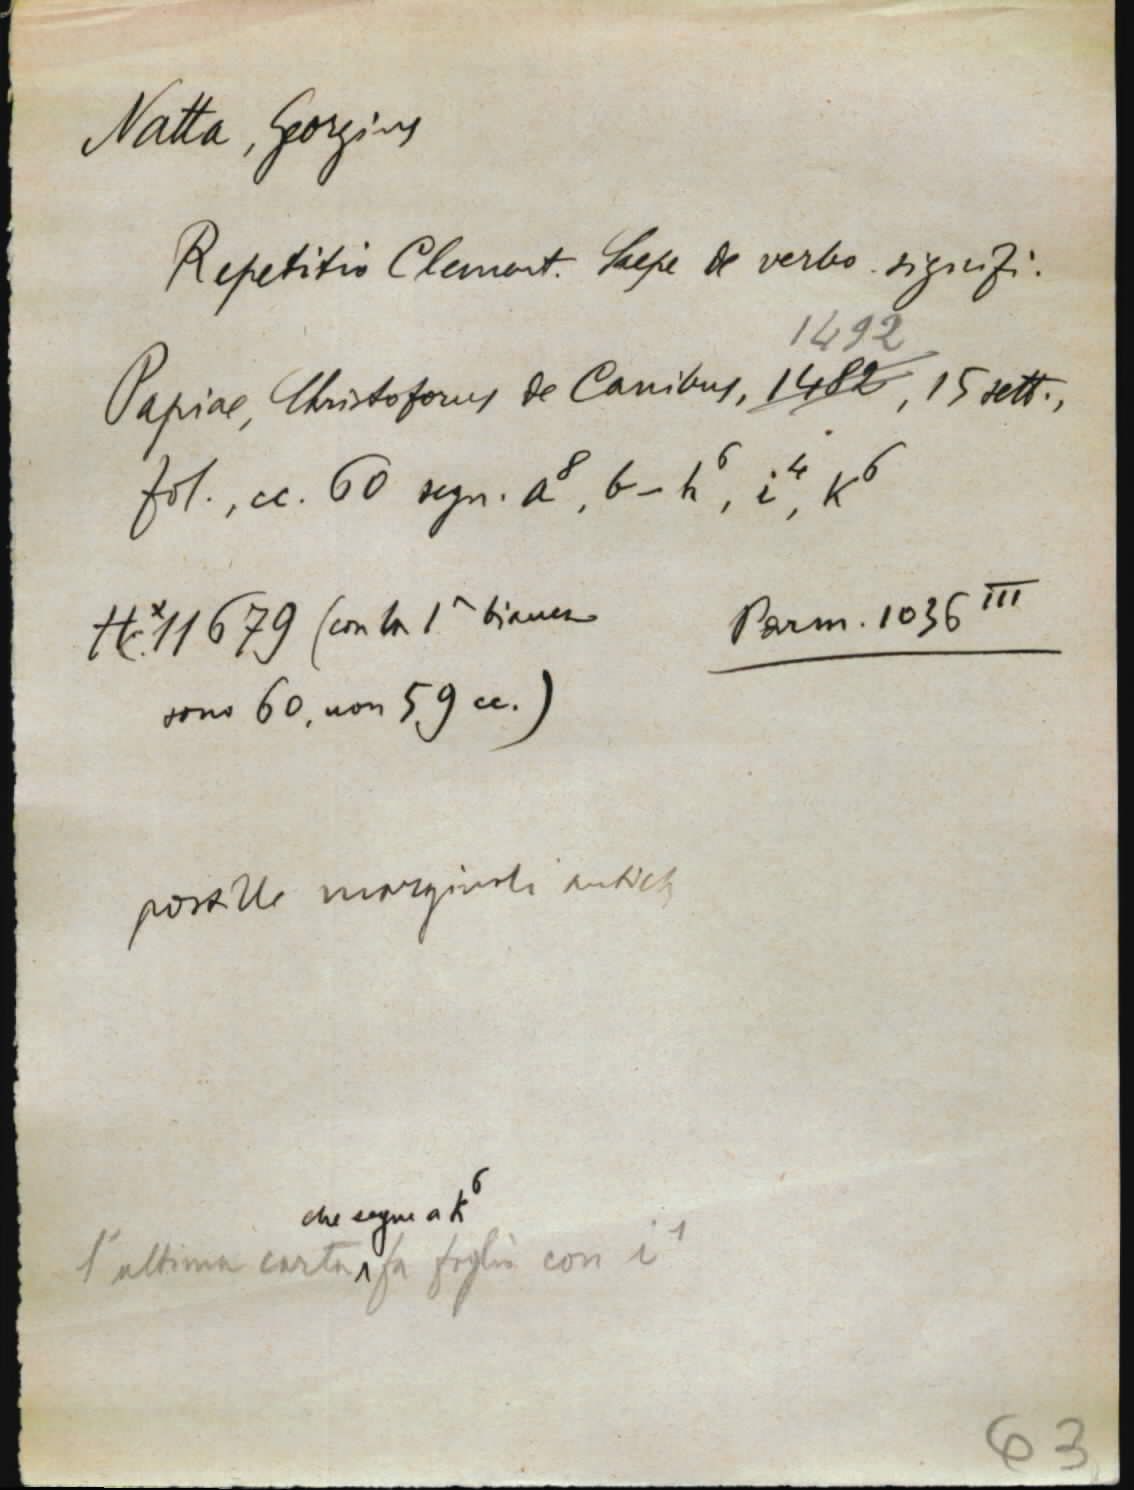 Natta, Georgius
Repetitio Clement. Saepe de verbo. signifi.
1492
Papiae, Christoforus de Canibus, 1482, 15 sett.,
fol., cc. 60 segn. a⁸, b-h⁶, i⁴, k⁶
Hc.ˣ 11679 (con la 1ᵃ bianca Parm. 1036 III
sono 60, non 59 cc.)
postille marginali antiche
che segue a k⁶
l'ultima carta ∧ fa foglio con i¹
63